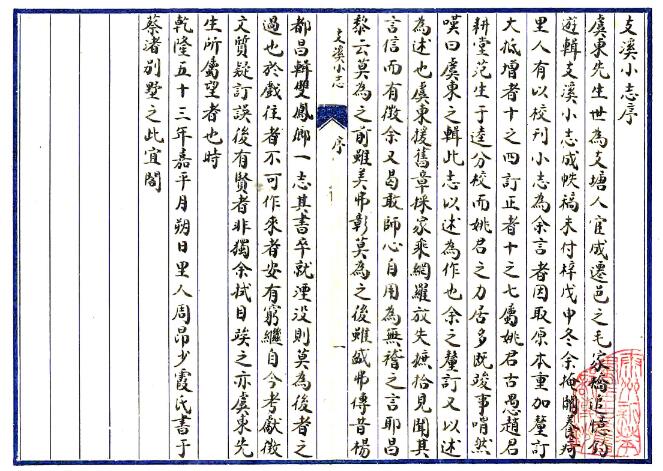 支溪小志序
虞東先生世為支塘人宦成遷邑之毛家橋追憶釣
遊輯支溪小志成帙稿未付梓戊申冬余抱疴養疴
里人有以校刊小志為余言者因取原本重加釐訂
大抵增者十之四訂正者十之七屬姚君古愚趙君
耕堂范生于逵分校而姚君之力居多既竣事喟然
嘆曰虞東之輯此志以述為作也余之釐訂又以述
為述也虞東援舊章採家乘網羅放失摭拾見聞其
言信而有徵余又曷敢師心自用為無稽之言耶昌
黎云莫為之前雖美弗彰莫為之後雖盛弗傳昔楊
支溪小志
序
一
都昌輯雙鳳鄉一志其書卒就湮没則莫為後者之
過也於戲往者不可作來者安有窮繼自今考獻徵
文質疑訂誤後有賢者非獨余拭目竢之亦虞東先
生所屬望者也時
乾隆五十三年嘉平月朔日里人周昂少霞氏書于
蔡渚別墅之此宜閣